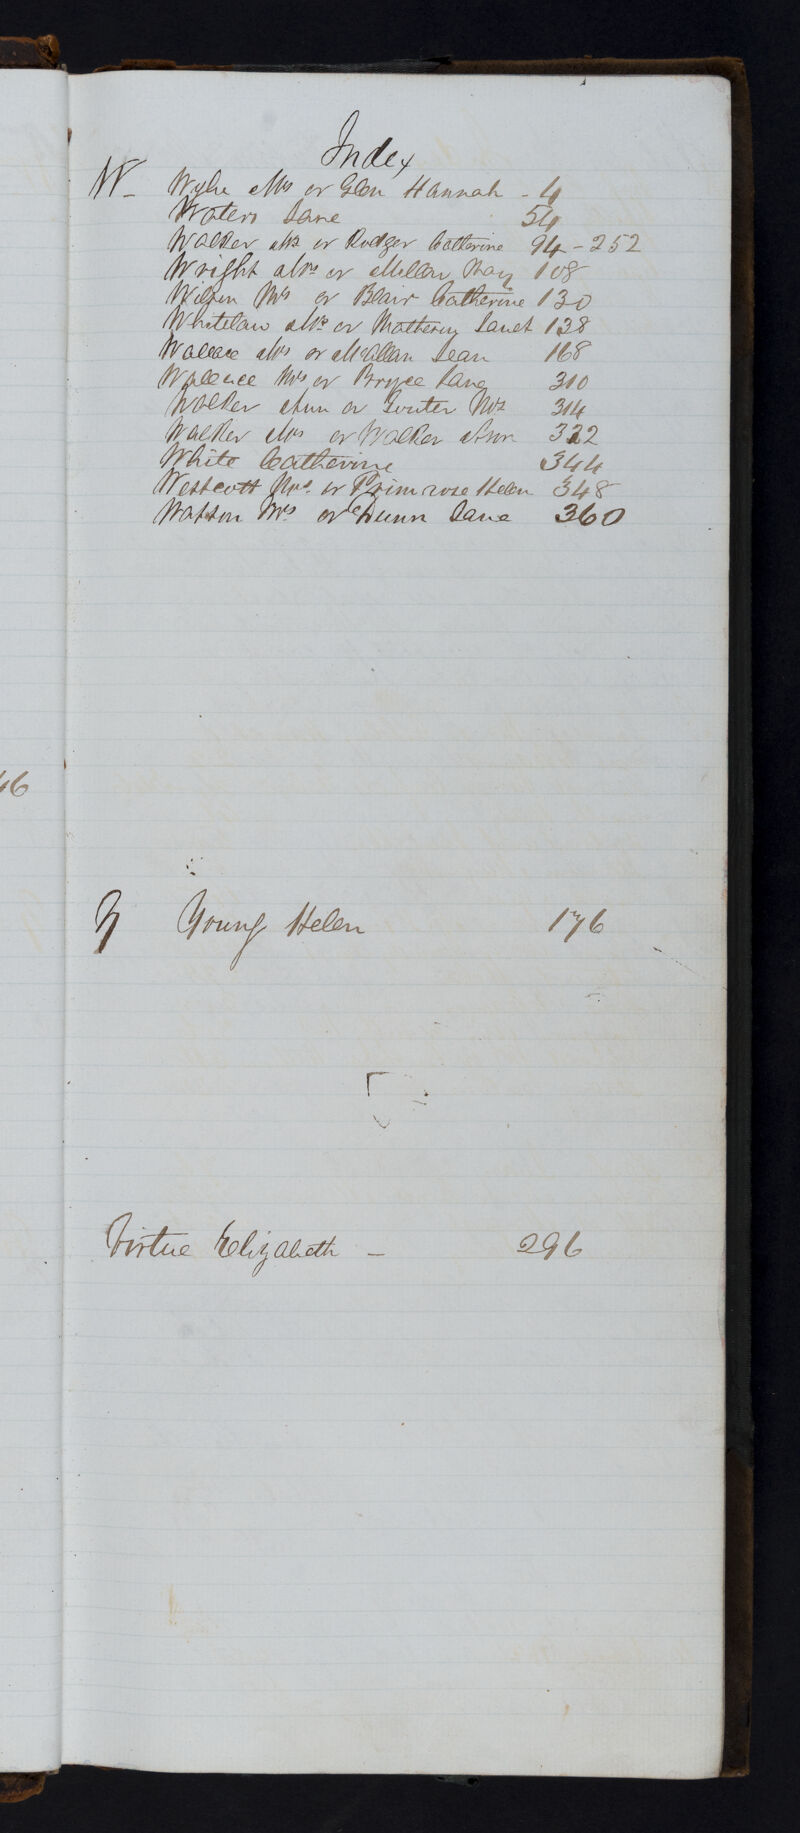 Index
W - Wylie Mrs or Glen Hannah - 4
Waters Jane 54
Walker Mrs or Rodger Catherine 94 - 252
Wright Mrs or Millan May 108
Wilson Mrs or Blair Catherine 130
Whitelaw Mrs or Janet 138
Wallace Mrs or McAllan Jean 168
Wallace Mrs or Bryce Jane 310
Walker Ann or Souter Mrs 314
Walker Mrs or Walker Ann 322
White Catherine 344
Westcott Mrs or Primrose Helen 348
Watson Mrs or Dunn Jane 360
46
Y Young Helen 176
Virtue Elizabeth - 296